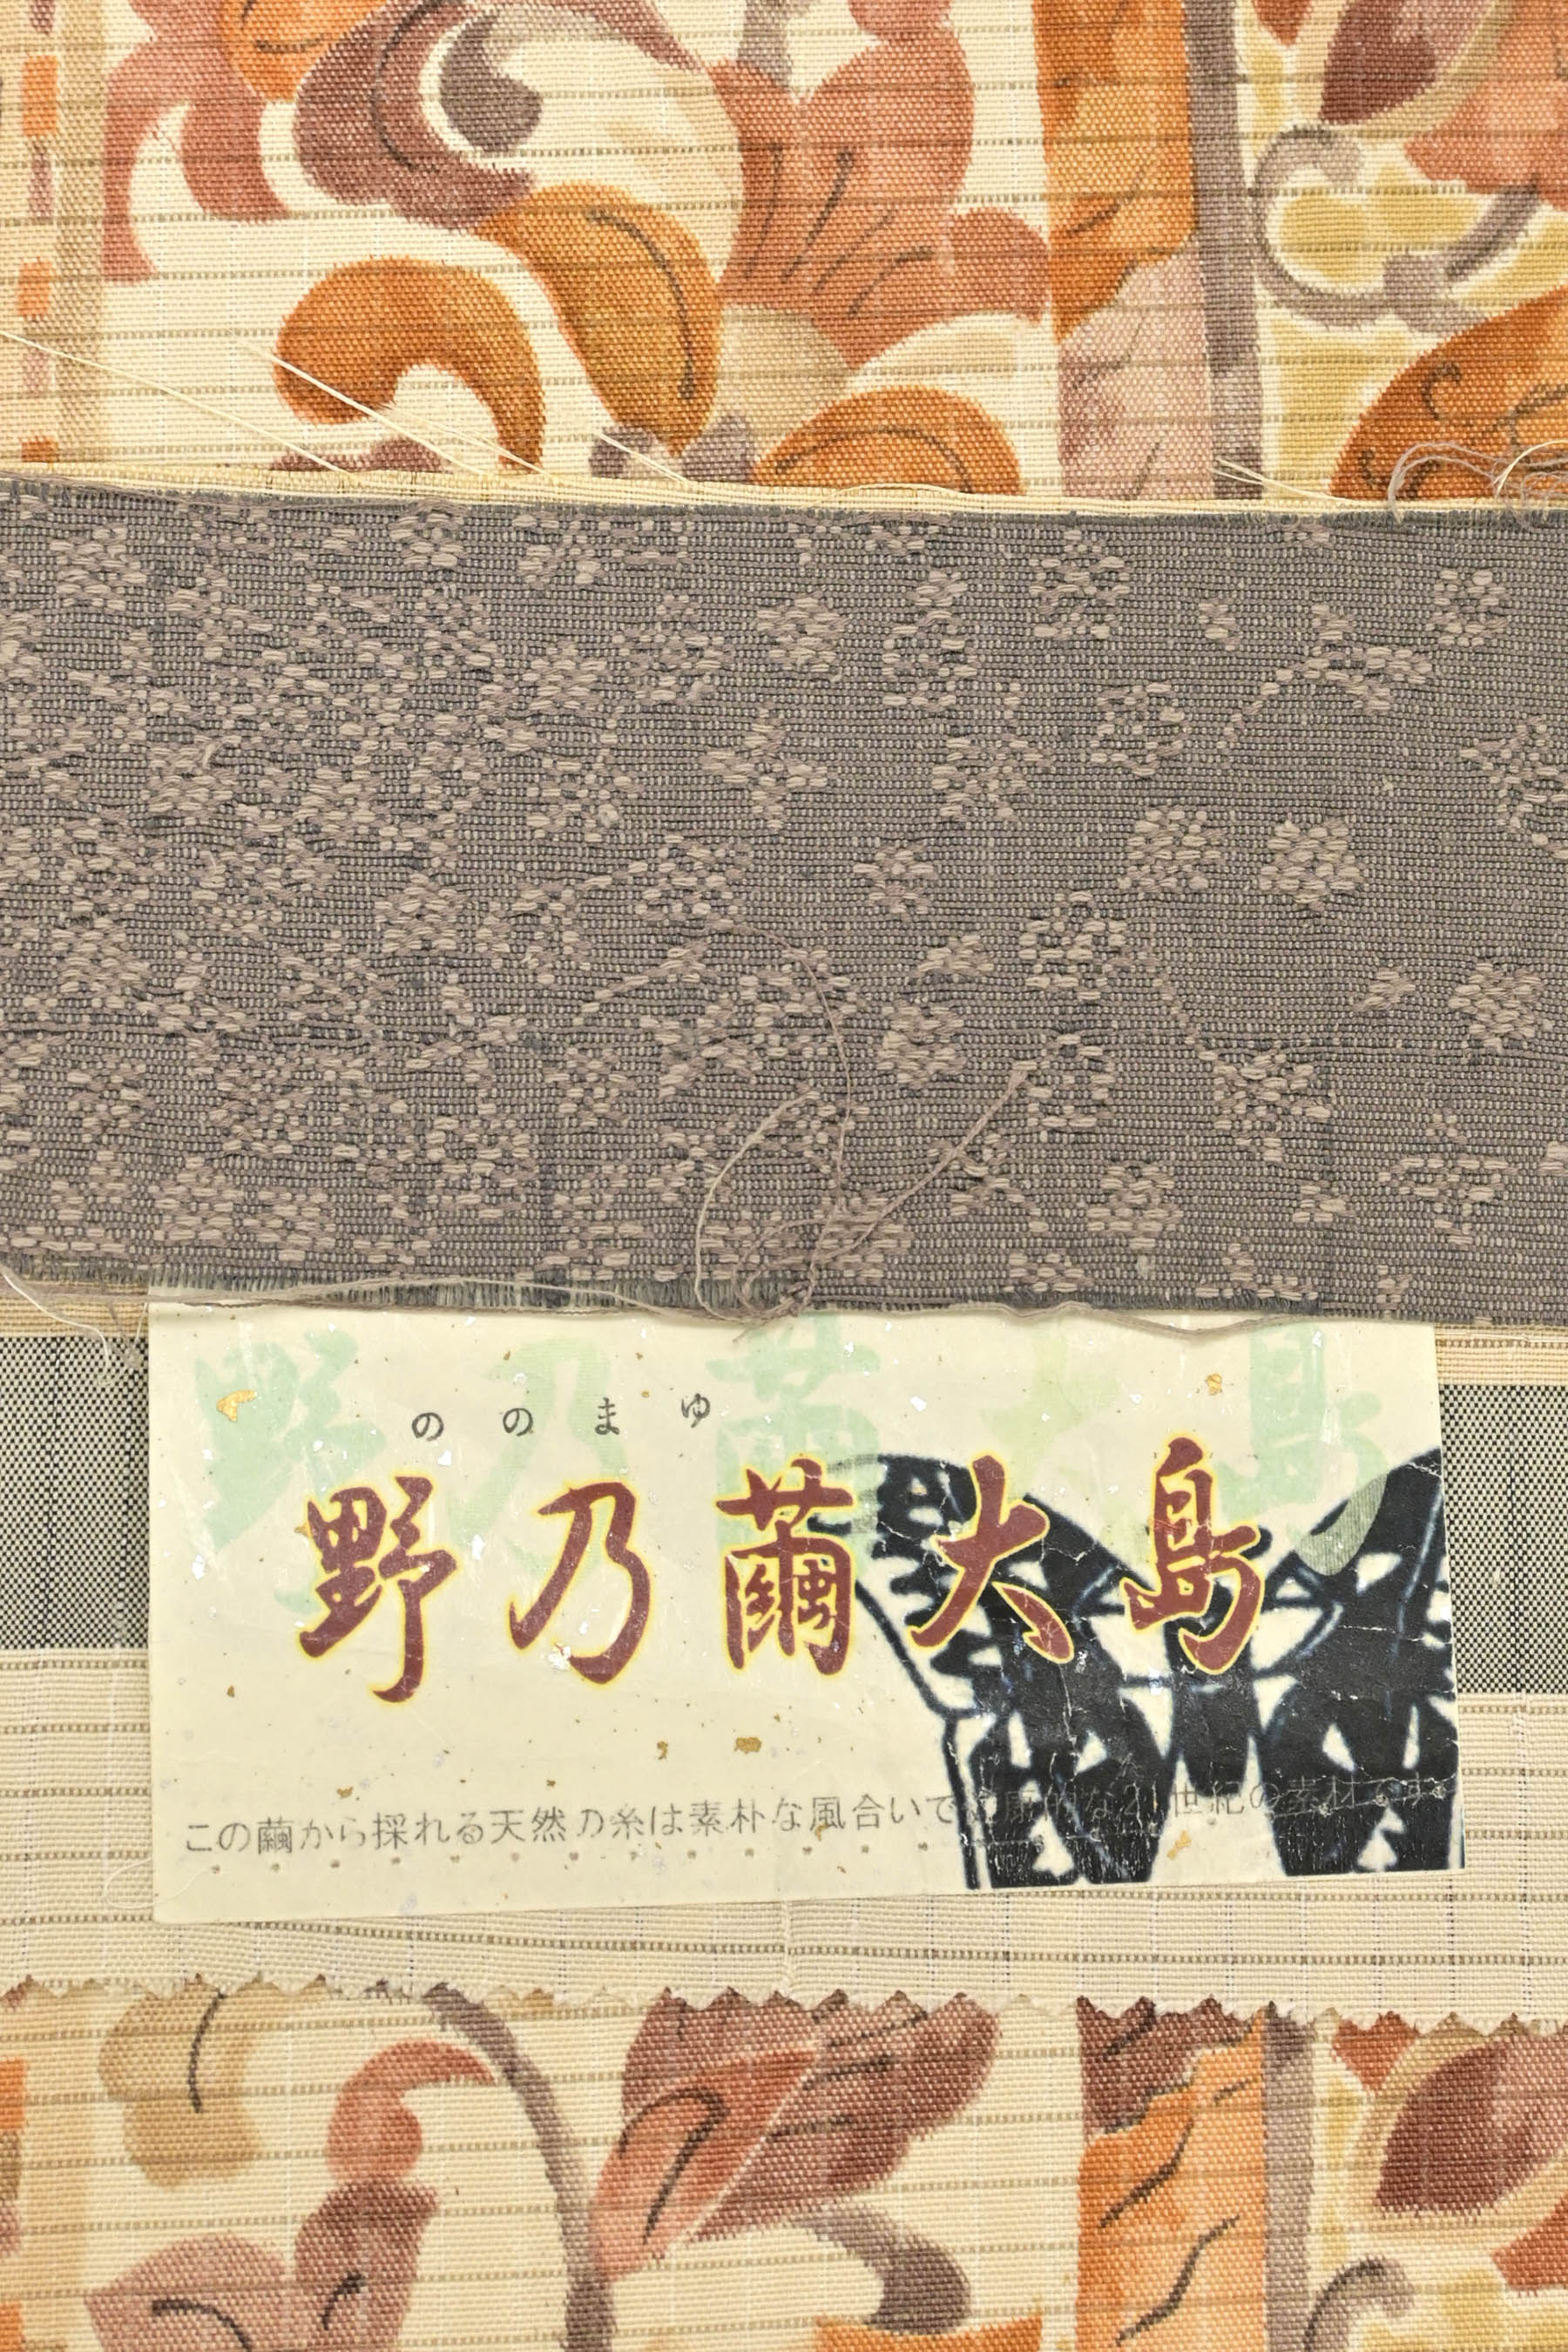 野乃繭大島
ののまゆ
野乃繭大島
この繭から採れる天然乃糸は素朴な風合いで な21世紀の素材です